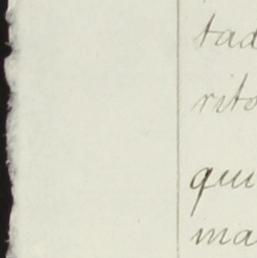 tad
rito
qui
ma